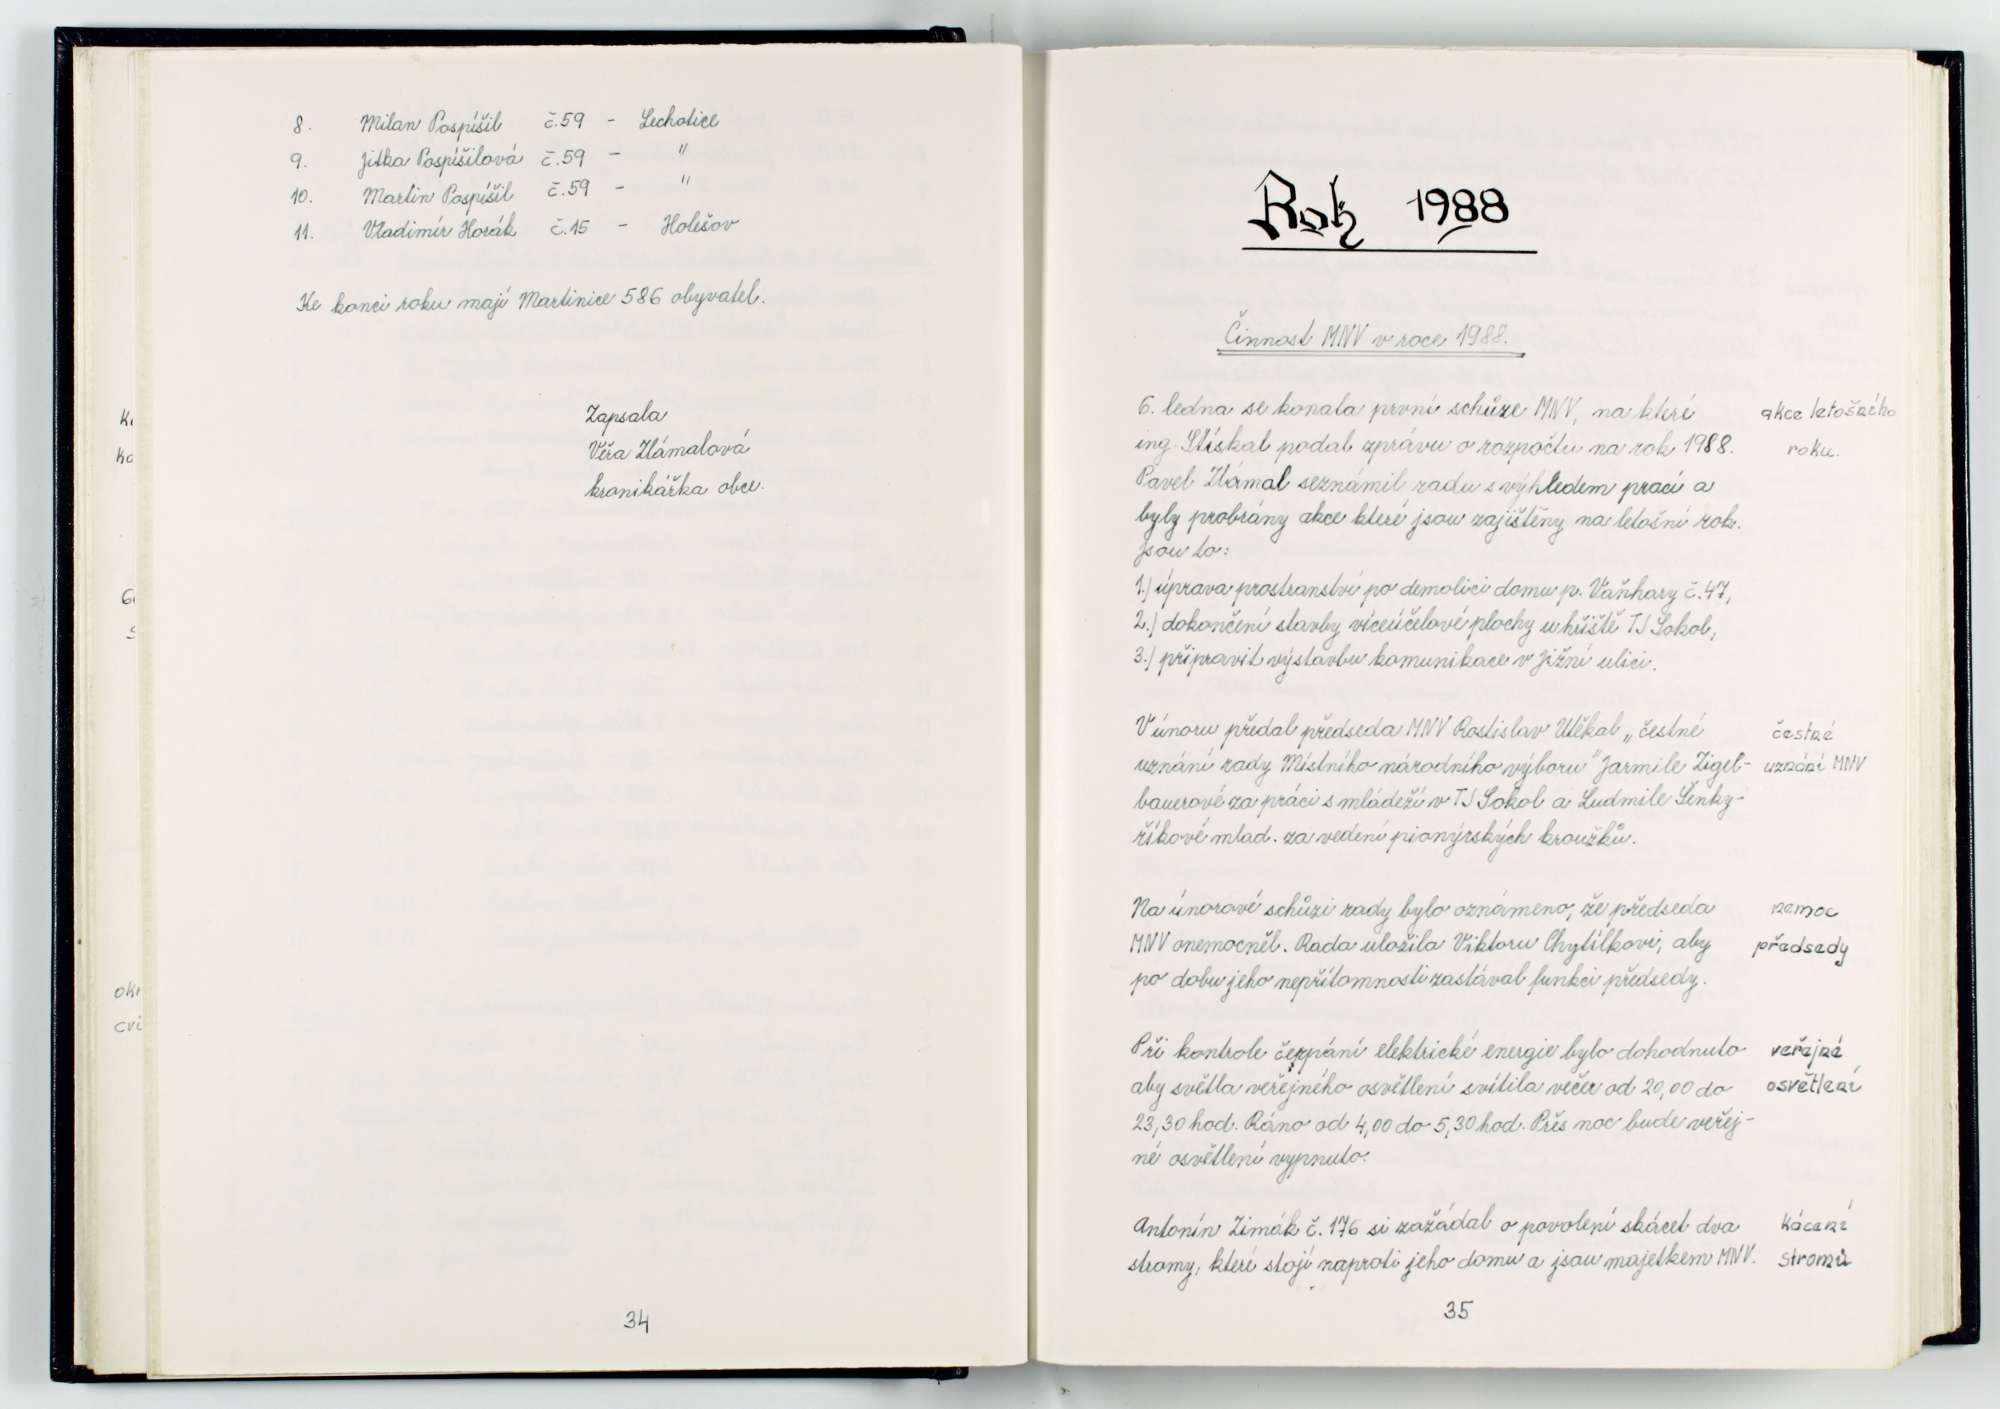 8. Milan Pospíšil č.59 - Lechotice
9. Jitka Pospíšilová č.59 - "
10. Martin Pospíšil č.59 - "
11. Vladimír Horák č.15 - Holešov
Ke konci roku mají Martinice 586 obyvatel.
Zapsala
Věra Zlámalová
kronikářka obce.
34
Rok 1988
Činnost MNV v roce 1988.
6. ledna se konala první schůze MNV, na které
ing. Stískal podal zprávu o rozpočtu na rok 1988.
Pavel Zlámal seznámil radu s výhledem prací a
byly probrány akce které jsou zajištěny na letošní rok.
Jsou to:
1.) úprava prostranství po demolici domu p. Vaňhary č.47,
2.) dokončení stavby víceúčelové plochy u hřiště TJ Sokol,
3.) připravit výstavbu komunikace v Jižní ulici.
akce letošního
roku.
V únoru předal předseda MNV Rostislav Utěkal „čestné
uznání rady Místního národního výboru" Jarmile Zigel-
bauerové za práci s mládeží v TJ Sokol a Ludmile Šenky-
říkové mlad. za vedení pionýrských kroužků.
čestné
uznání MNV
Na únorové schůzi rady bylo oznámeno, že předseda
MNV onemocněl. Rada uložila Viktoru Chytílkovi, aby
po dobu jeho nepřítomnosti zastával funkci předsedy.
nemoc
předsedy
Při kontrole čerpání elektrické energie bylo dohodnuto
aby světla veřejného osvětlení svítila večer od 20,00 do
23,30 hod. Ráno od 4,00 do 5,30 hod. Přes noc bude veřej-
né osvětlení vypnuto.
veřejné
osvětlení
Antonín Zimák č.176 si zažádal o povolení skácet dva
stromy, které stojí naproti jeho domu a jsou majetkem MNV.
kácení
stromů
35